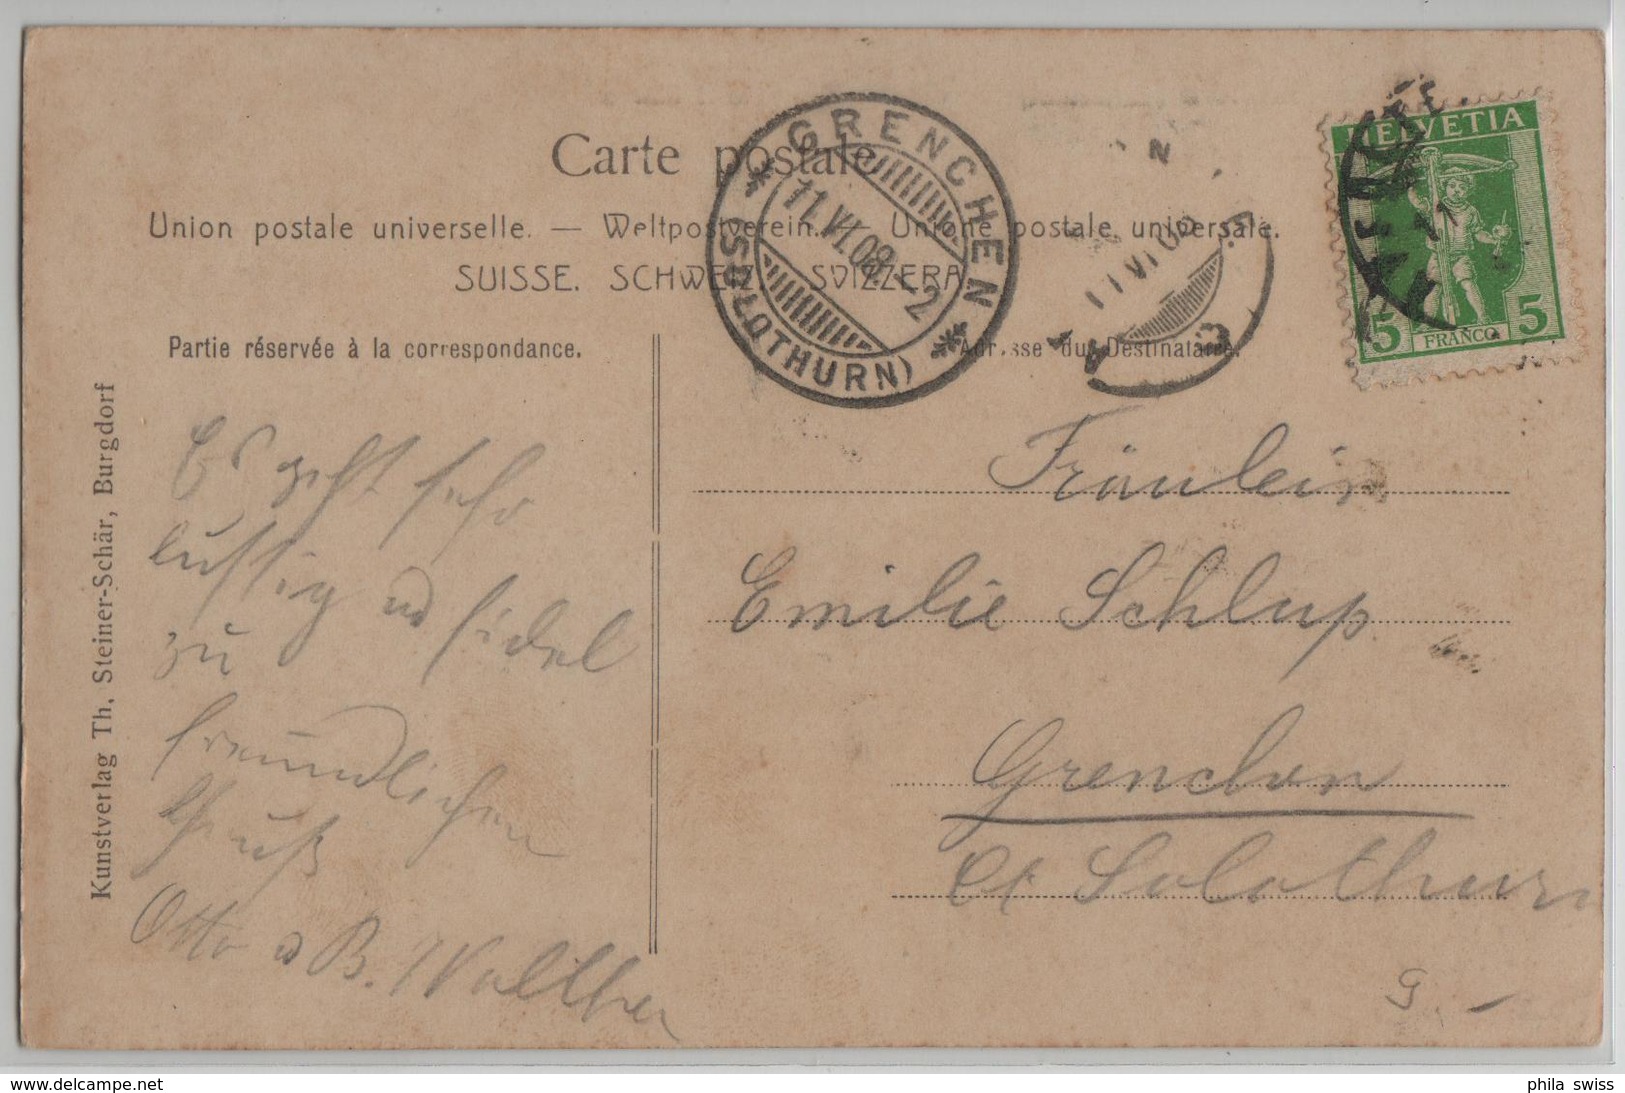 Carte postale
Union postale universelle. — Weltpostverein. — Unione postale universale.
SUISSE. SCHWEIZ. SVIZZERA
Partie réservée à la correspondance.
Adresse du Destinataire.
GRENCHEN
11.VI.08.–2
(SOLOTHURN)
11 VI 08
HELVETIA
5 FRANCO 5
Kunstverlag Th. Steiner-Schär, Burgdorf
Es geht sehr
lustig und fidel
zu
freundlichen
Gruß
Otto u B. Walther
Fräulein
Emilie Schlup
Grenchen
Ct Solothurn
9.–
delcampe.net
phila_swiss